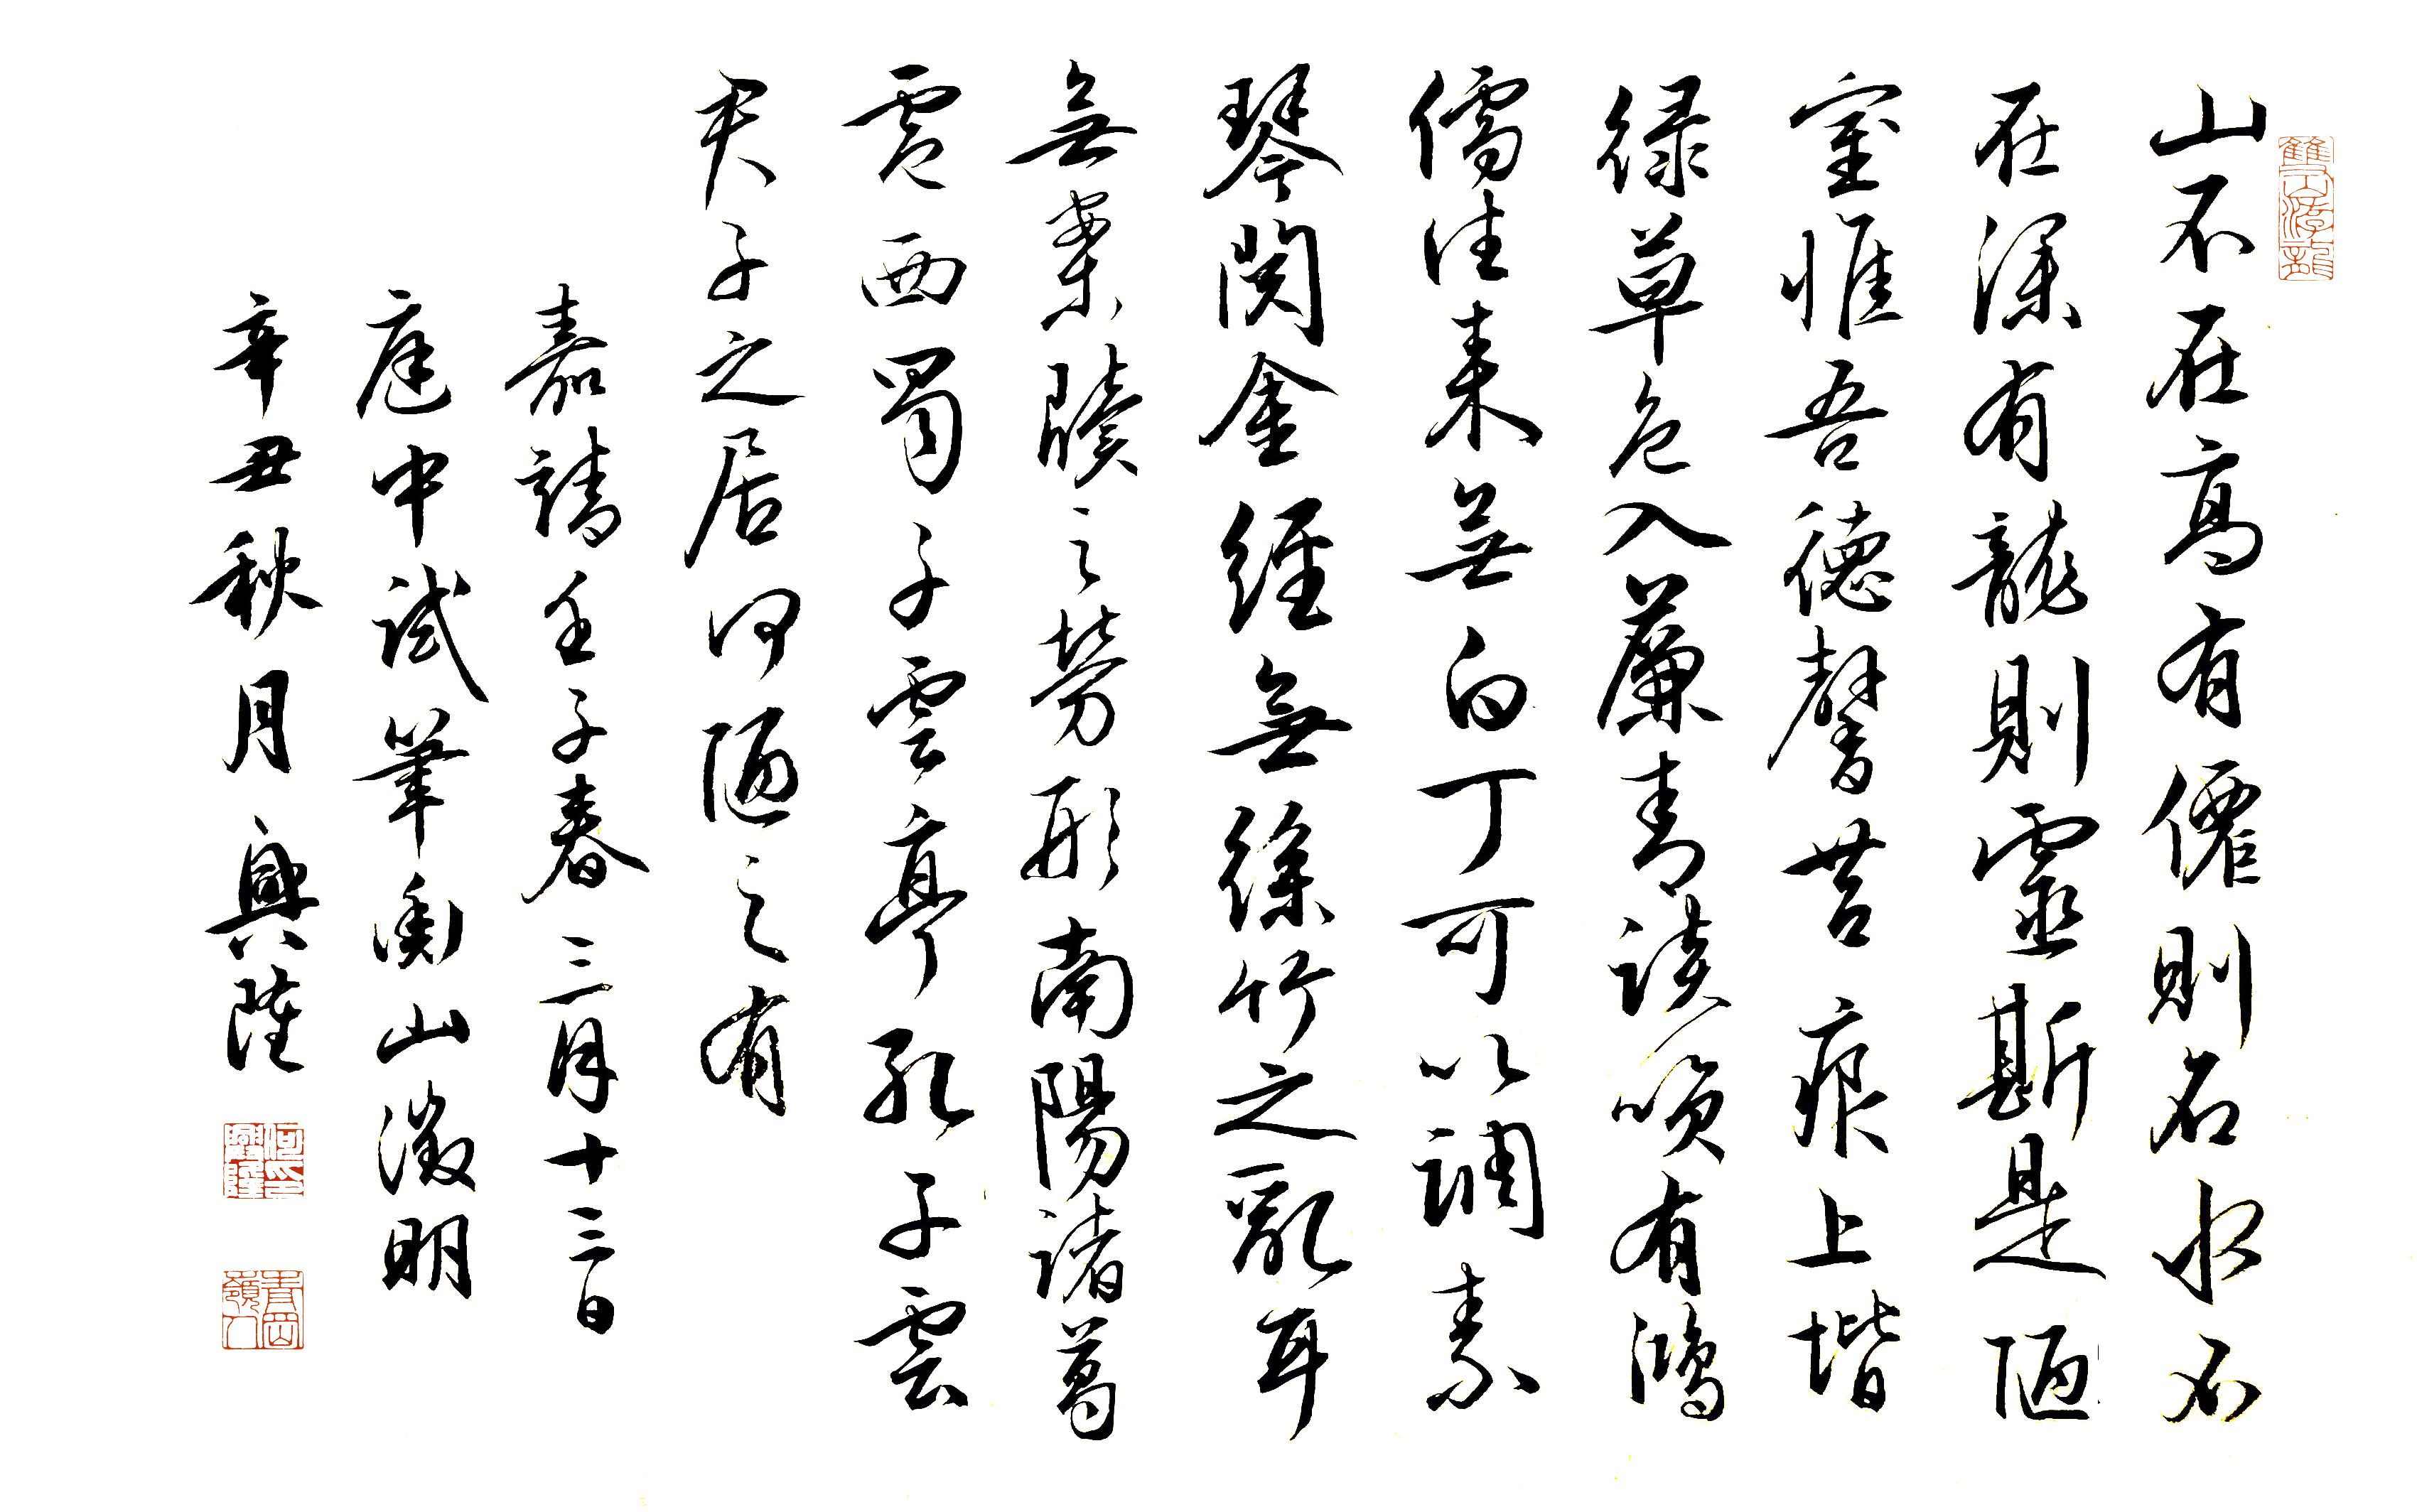 山不在高有僊則名水不
在深有龍則靈斯是陋
室惟吾德馨苔痕上堦
緑草色入簾青談咲有鴻
儒往来無白丁可以調素
琴閱金經無絲竹之亂耳
無案牘之勞形南陽諸葛
廬西蜀子雲亭孔子雲
君子之居何陋之有
嘉靖壬子春三月十三日
庭中試筆衡山徵明
辛丑秋月 興隆
青岡嶺人